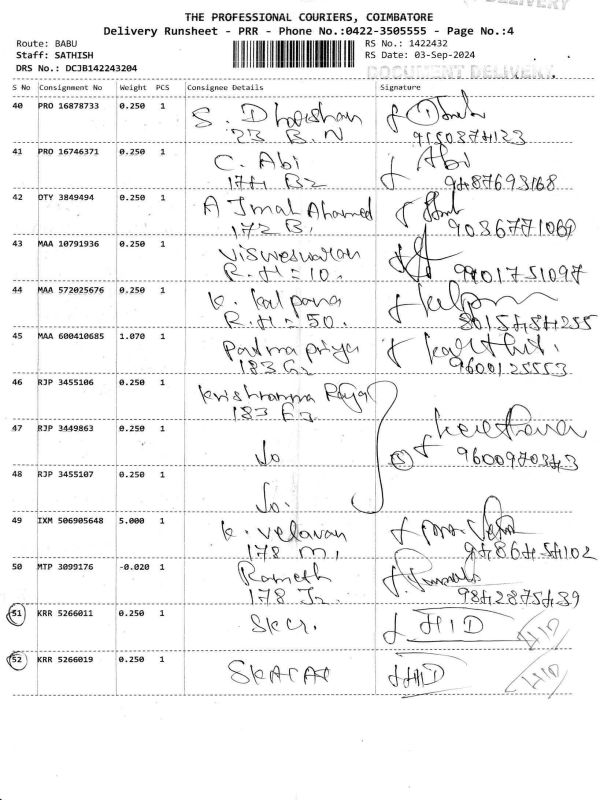 THE PROFESSIONAL COURIERS, COIMBATORE
Delivery Runsheet - PRR - Phone No.:0422-3505555 - Page No.:4
DELIVERY
Route: BABU
RS No.: 1422432
Staff: SATHISH
RS Date: 03-Sep-2024
DRS No.: DCJB142243204
DOCUMENT DELIVERY
S No Consignment No Weight PCS Consignee Details Signature
40 PRO 16878733 0.250 1 S. Dharshan
23 B.N
41 PRO 16746371 0.250 1 C. Abi Abi
174 B2 9487693168
42 OTY 3849494 0.250 1 A Jmal Ahamed
172 B1 9036771069
43 MAA 10791936 0.250 1 Visweswaran
R.H = 10.
44 MAA 572025676 0.250 1 K. Kalpana
R.H = 50. 8015484255
45 MAA 600410685 1.070 1 Padma priya
183 G2 9600125553
46 RJP 3455106 0.250 1
183
47 RJP 3449863 0.250 1 Do
9600970343
48 RJP 3455107 0.250 1 Do.
49 IXM 506905648 5.000 1 K. Velavan
178 M1 9486454102
50 MTP 3099176 -0.020 1 Ramesh
178 J2. 9842875439
51 KRR 5266011 0.250 1 HID
52 KRR 5266019 0.250 1 HID